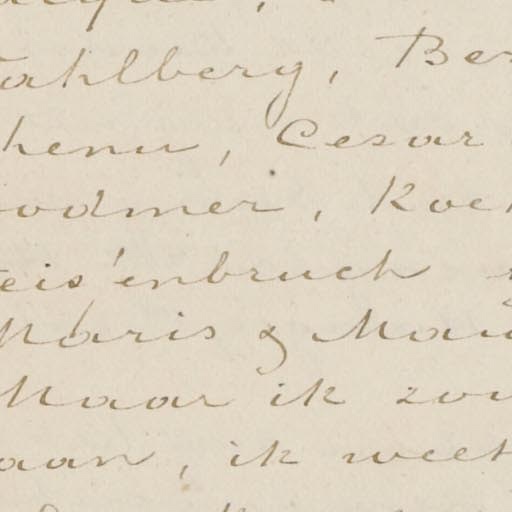 ahlberg, Be
henu, Cesar
odmer, Koek
eisenbruch
Maris & Mau
Maar ik zou
aan, ik weet